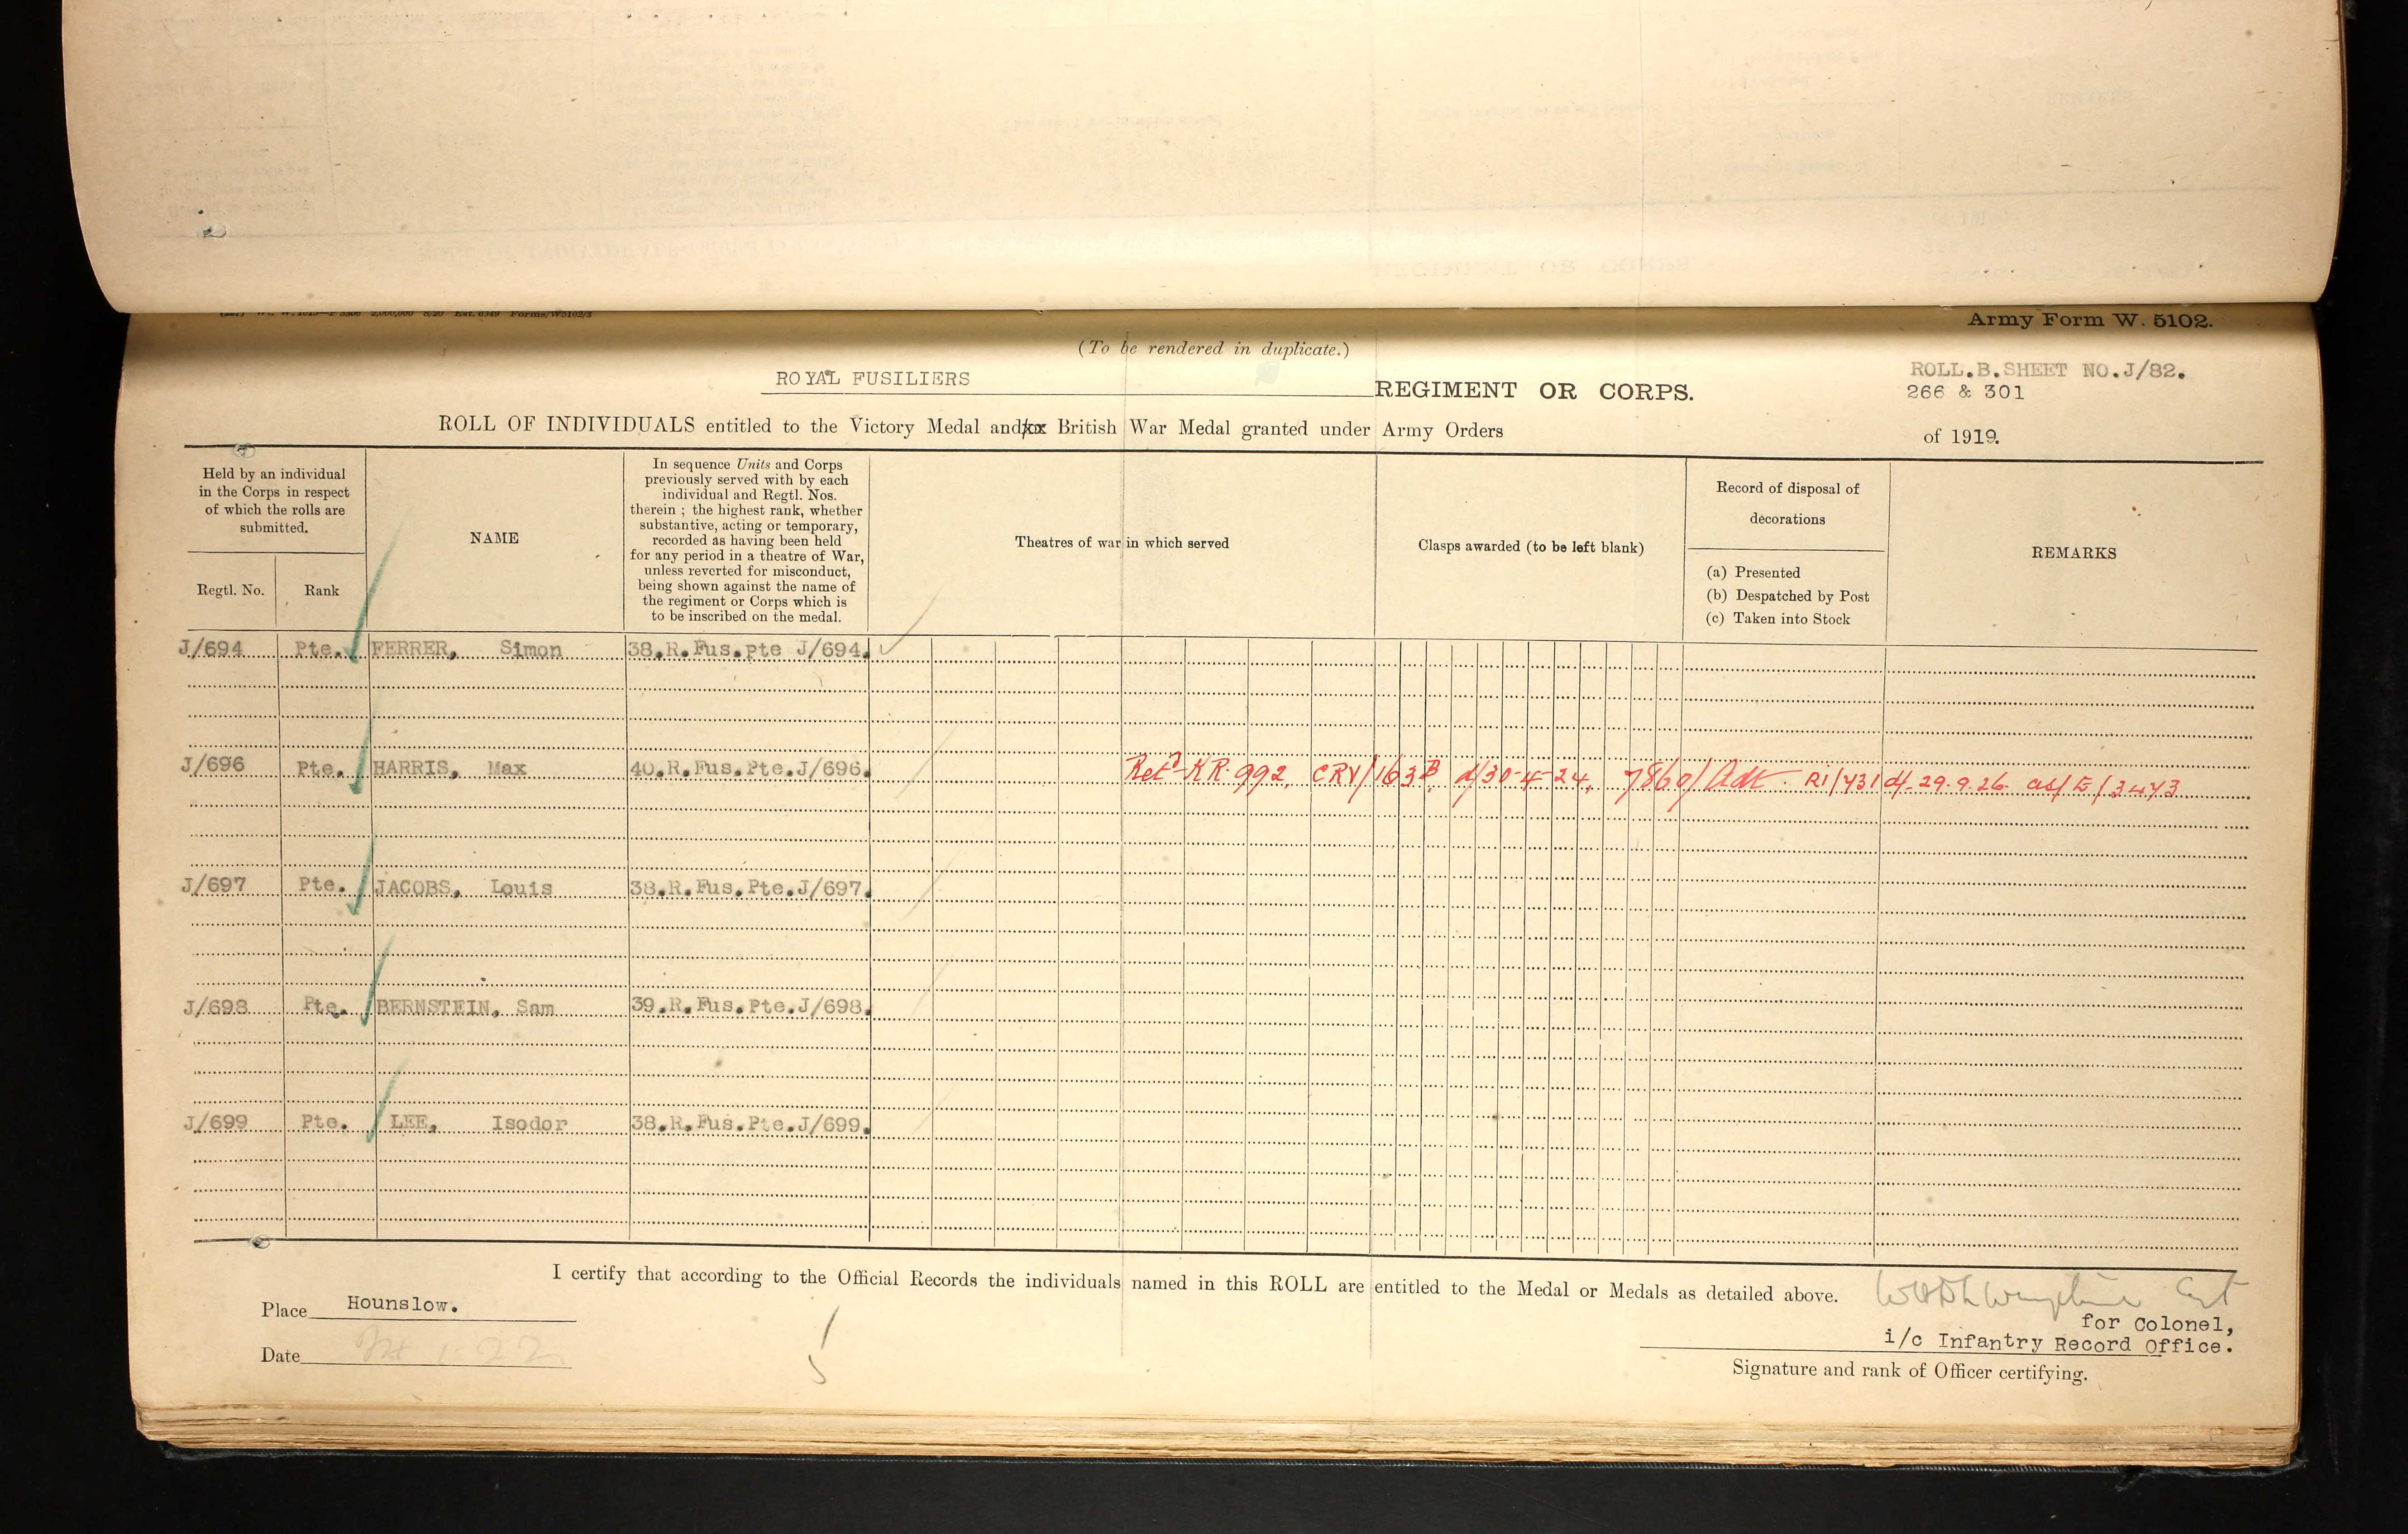 Army Form W. 5102.
(To be rendered in duplicate.)
ROYAL FUSILIERS REGIMENT OR CORPS.
ROLL.B.SHEET NO.J/82.
266 & 301
ROLL OF INDIVIDUALS entitled to the Victory Medal and/xx British War Medal granted under Army Orders of 1919.
Held by an individual
in the Corps in respect
of which the rolls are
submitted.
Regtl. No.
Rank
NAME
In sequence Units and Corps
previously served with by each
individual and Regtl. Nos.
therein ; the highest rank, whether
substantive, acting or temporary,
recorded as having been held
for any period in a theatre of War,
unless reverted for misconduct,
being shown against the name of
the regiment or Corps which is
to be inscribed on the medal.
Theatres of war in which served
Clasps awarded (to be left blank)
Record of disposal of
decorations
(a) Presented
(b) Despatched by Post
(c) Taken into Stock
REMARKS
J/694 Pte. FERRER, Simon 38.R.Fus.pte J/694.
J/696 Pte. HARRIS, Max 40.R.Fus.Pte.J/696. Retd KR. 992, CRV/163B, d/30-4-24, 7860/Adt. R1/431 d/- 29.9.26. as/E/3473
J/697 Pte. JACOBS, Louis 38.R.Fus.Pte.J/697.
J/698 Pte. BERNSTEIN, Sam 39.R.Fus.Pte.J/698.
J/699 Pte. LEE, Isodor 38.R.Fus.Pte.J/699.
I certify that according to the Official Records the individuals named in this ROLL are entitled to the Medal or Medals as detailed above.
Place Hounslow.
Date 1-22
Capt
for Colonel,
i/c Infantry Record Office.
Signature and rank of Officer certifying.